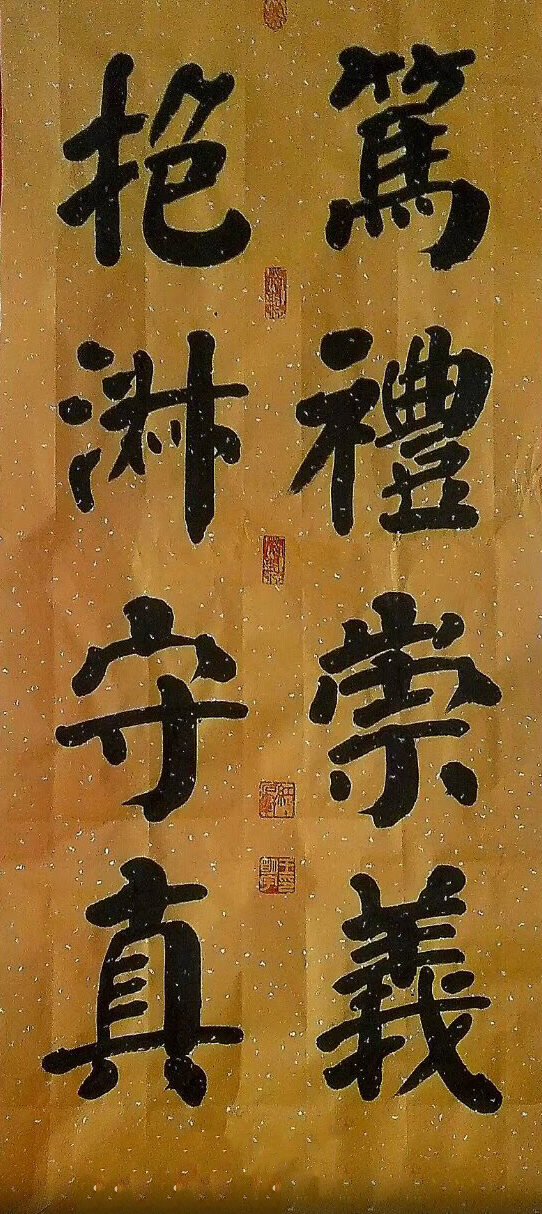 篤禮崇義
抱淑守真